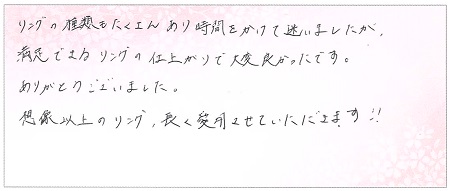 リングの種類もたくさんあり時間をかけて迷いましたが、
満足できるリングの仕上がりで大変良かったです。
ありがとうございました。
想像以上のリング、長く愛用させていただきます!!